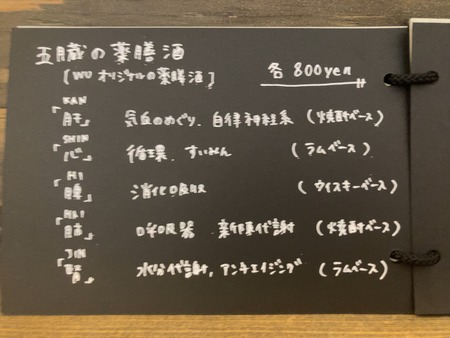 五臓の薬膳酒
[WU オリジナルの薬膳酒] 各 800yen
KAN
「肝」 気血のめぐり、自律神経系 (焼酎ベース)
SHIN
「心」 循環、すいみん (ラムベース)
HI
「脾」 消化吸収 (ウイスキーベース)
HAI
「肺」 呼吸器 新陳代謝 (焼酎ベース)
JIN
「腎」 水分代謝、アンチエイジング (ラムベース)